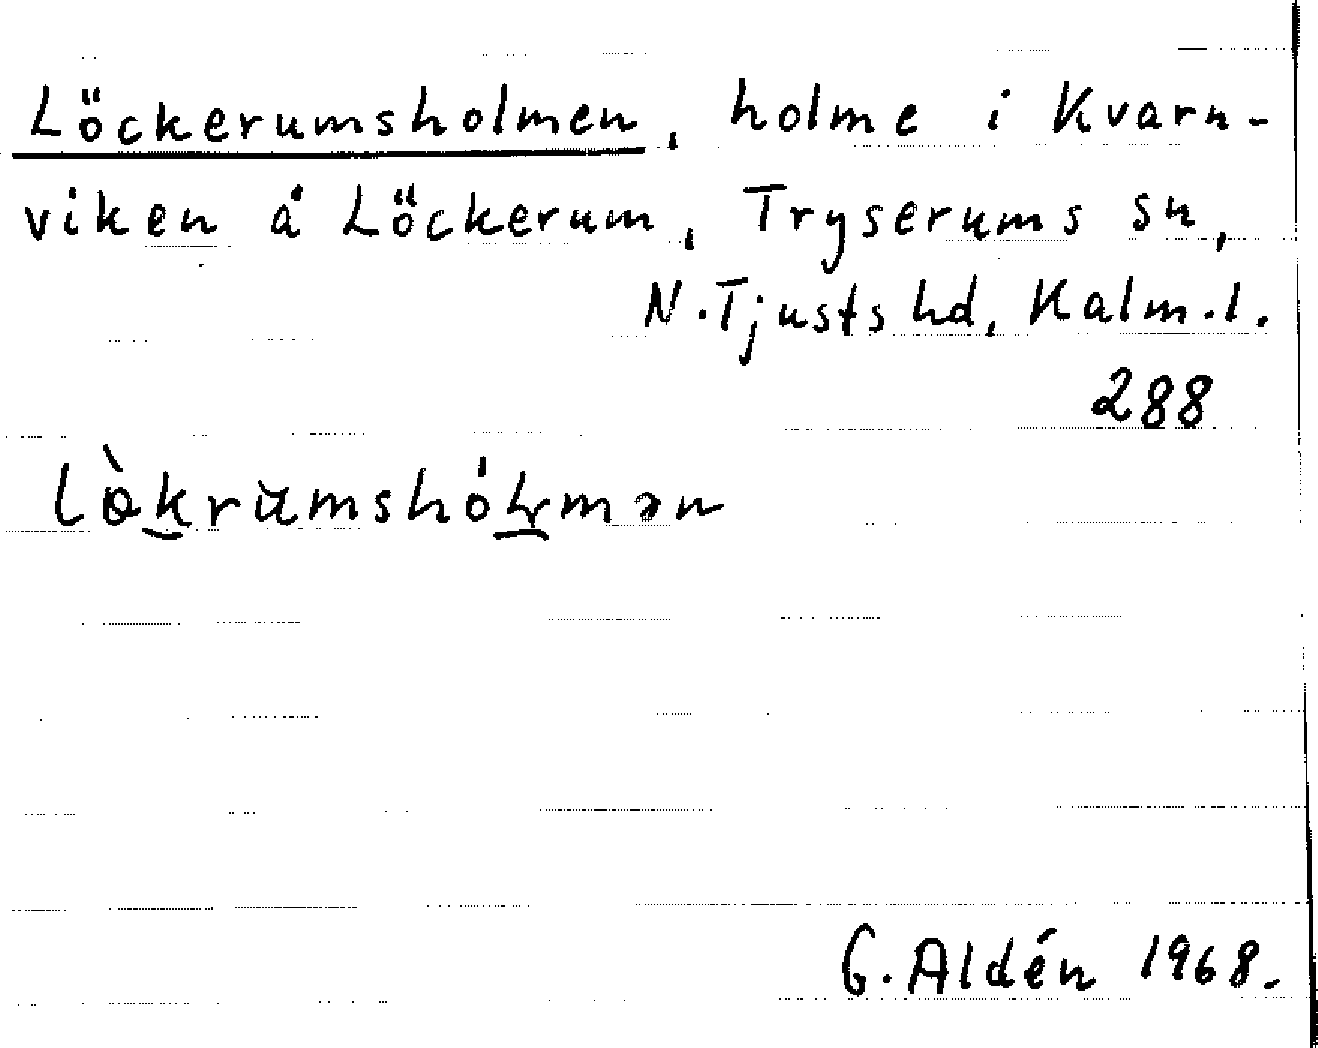 Löckerumsholmen, holme i Kvarn-
viken å Löckerum, Tryserums sn,
N. Tjusts hd, Kalm. l.
288
G. Aldén 1968.